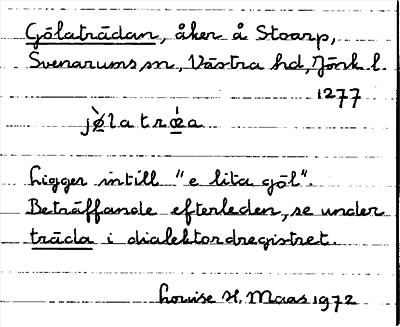 Gölaträdan, åker å Stoarp,
Svenarums sn, Västra hd, Jönk l.
1277
jø̀latrœ́a
Ligger intill "e lita göl".
Beträffande efterleden, se under
träda i dialektordregistret.
Louise H. Maas 1972